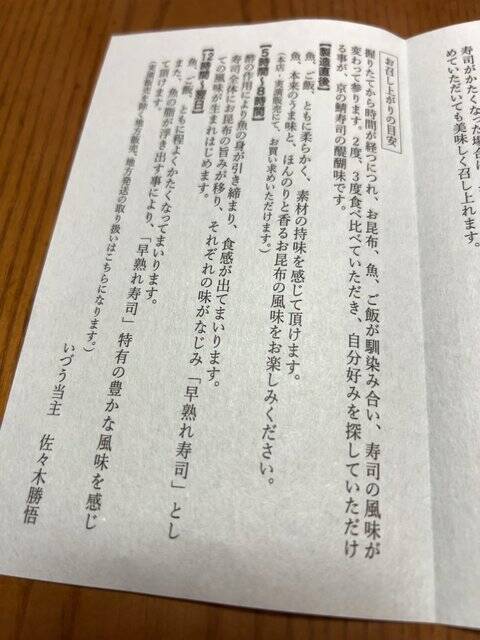 寿司がかたくなった場合は、
めていただいても美味しく召し上れます。
お召し上がりの目安
握りたてから時間が経つにつれ、お昆布、魚、ご飯が馴染み合い、寿司の風味が
変わって参ります。2度、3度食べ比べていただき、自分好みを探していただけ
る事が、京の鯖寿司の醍醐味です。
【製造直後】
魚、ご飯、ともに柔らかく、素材の持味を感じて頂けます。
魚、本来のうま味と、ほんのりと香るお昆布の風味をお楽しみください。
(本店・実演販売にて、お買い求めいただけます。)
【5時間〜8時間】
酢の作用により魚の身が引き締まり、食感が出てまいります。
寿司全体にお昆布の旨みが移り、それぞれの味がなじみ「早熟れ寿司」とし
ての風味が生まれはじめます。
【12時間〜翌日】
魚、ご飯、ともに程よくかたくなってまいります。
また、魚の脂が浮き出す事により、「早熟れ寿司」特有の豊かな風味を感じ
て頂けます。
(実演販売を除く地方販売、地方発送の取り扱いはこちらになります。)
いづう当主 佐々木勝悟